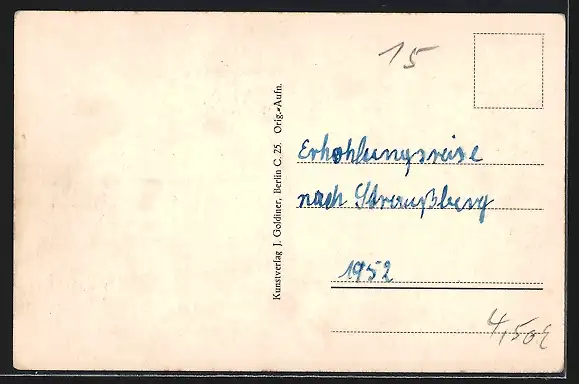 15
Kunstverlag J. Goldiner, Berlin C. 25. Orig.-Aufn.
Erhohlungsreise
nach Straußberg
1952
4,50